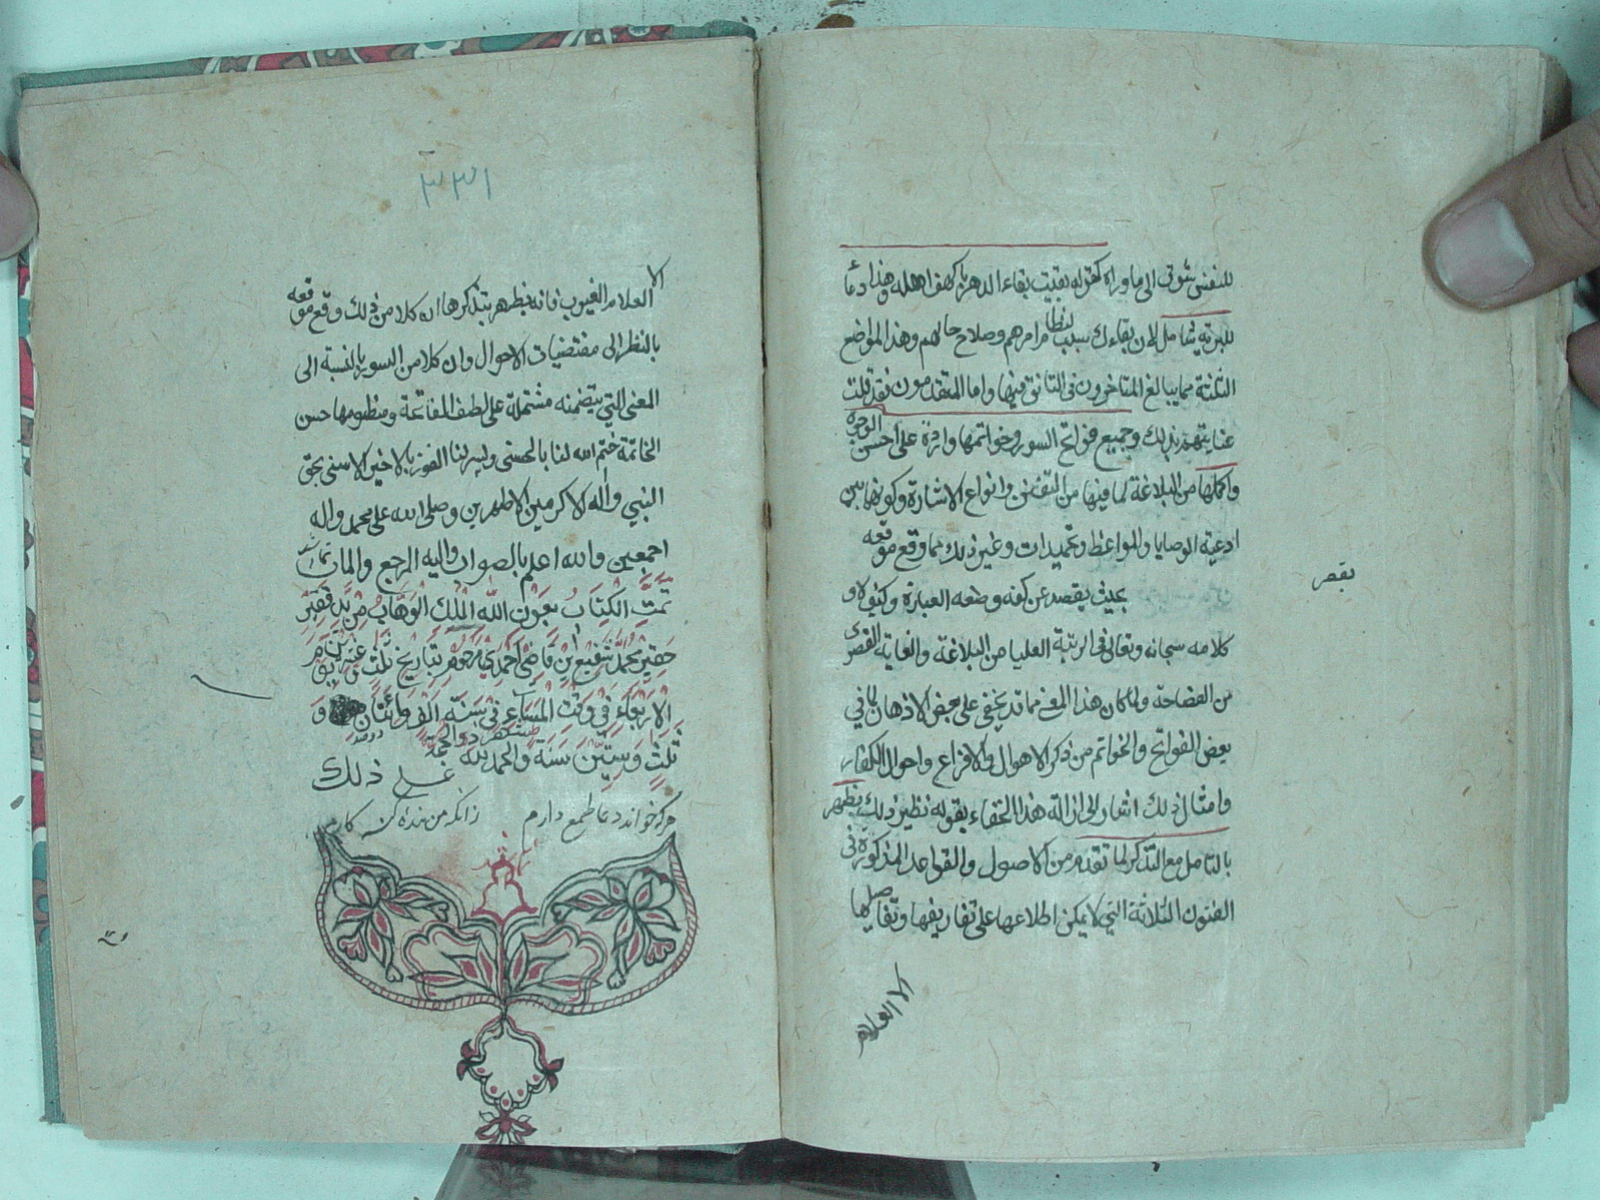 للنفس تشوق الى ما وراه كقوله بقيت بقاء الدهر يا كهف اهله وهذا دعاء
للبرية شامل لان بقاءك سبب لنظام امرهم وصلاح حالهم وهذا المواضع
الثلثة مما يبالغ المتاخرون في التانق فيها واما المتقدمون فقد قلت
عنايتهم بذلك وجميع فواتح السور وخواتمها واردة على احسن الوجوه
واكملها من البلاغة لما فيها من التفنن وانواع الاشارة وكونها بين
ادعية الوصايا والمواعظ وتحميدات وغير ذلك مما وقع موقعه
بحيث يقصر عن كنه وصفه العبارة وكيف لا و
يقصر
كلامه سبحانه وتعالى في الرتبة العليا من البلاغة والغاية القصوى
من الفصاحة ولما كان هذا المعنى مما قد يخفى على بعض الاذهان لما في
بعض الفواتح والخواتم من ذكر الاهوال والافزاع واحوال الكفار
وامثال ذلك اشار الى ازالة هذا الخفاء بقوله نظير ذلك يظهر
بالتامل مع التذكر لما تقدم من الاصول والقواعد المذكورة في
الفنون الثلاثة التي لا يمكن اطلاعها على تفاريقها وتفاصيلها
الا العلام
٣٣١
الا العلام الغيوب فانه يظهر بتذكرها ان كلا من ذلك وقع موقعه
بالنظر الى مقتضيات الاحوال وان كلا من السور بالنسبة الى
المعنى التي يتضمنه مشتملة على لطف الفاتحة ومنطومها حسن
الخاتمة ختم الله لنا بالحسنى ويسر لنا الفوز بالاخير الاسنى بحق
النبي واله الاكرمين الاطهرين وصلى الله على محمد واله
اجمعين والله اعلم بالصواب واليه المرجع والماب
تمت الكتاب بعون الله الملك الوهاب من يد فقير
حقير محمد شفيع ابن قاضي احمدي مرحوم بتاريخ ثلث
الاربعاء في وقت المساء في سنة الف ومائتان و
ثلث وستين سنة والحمد لله
على ذلك
هركه خواند دعا طمع دارم زانكه من بنده كنه كارم